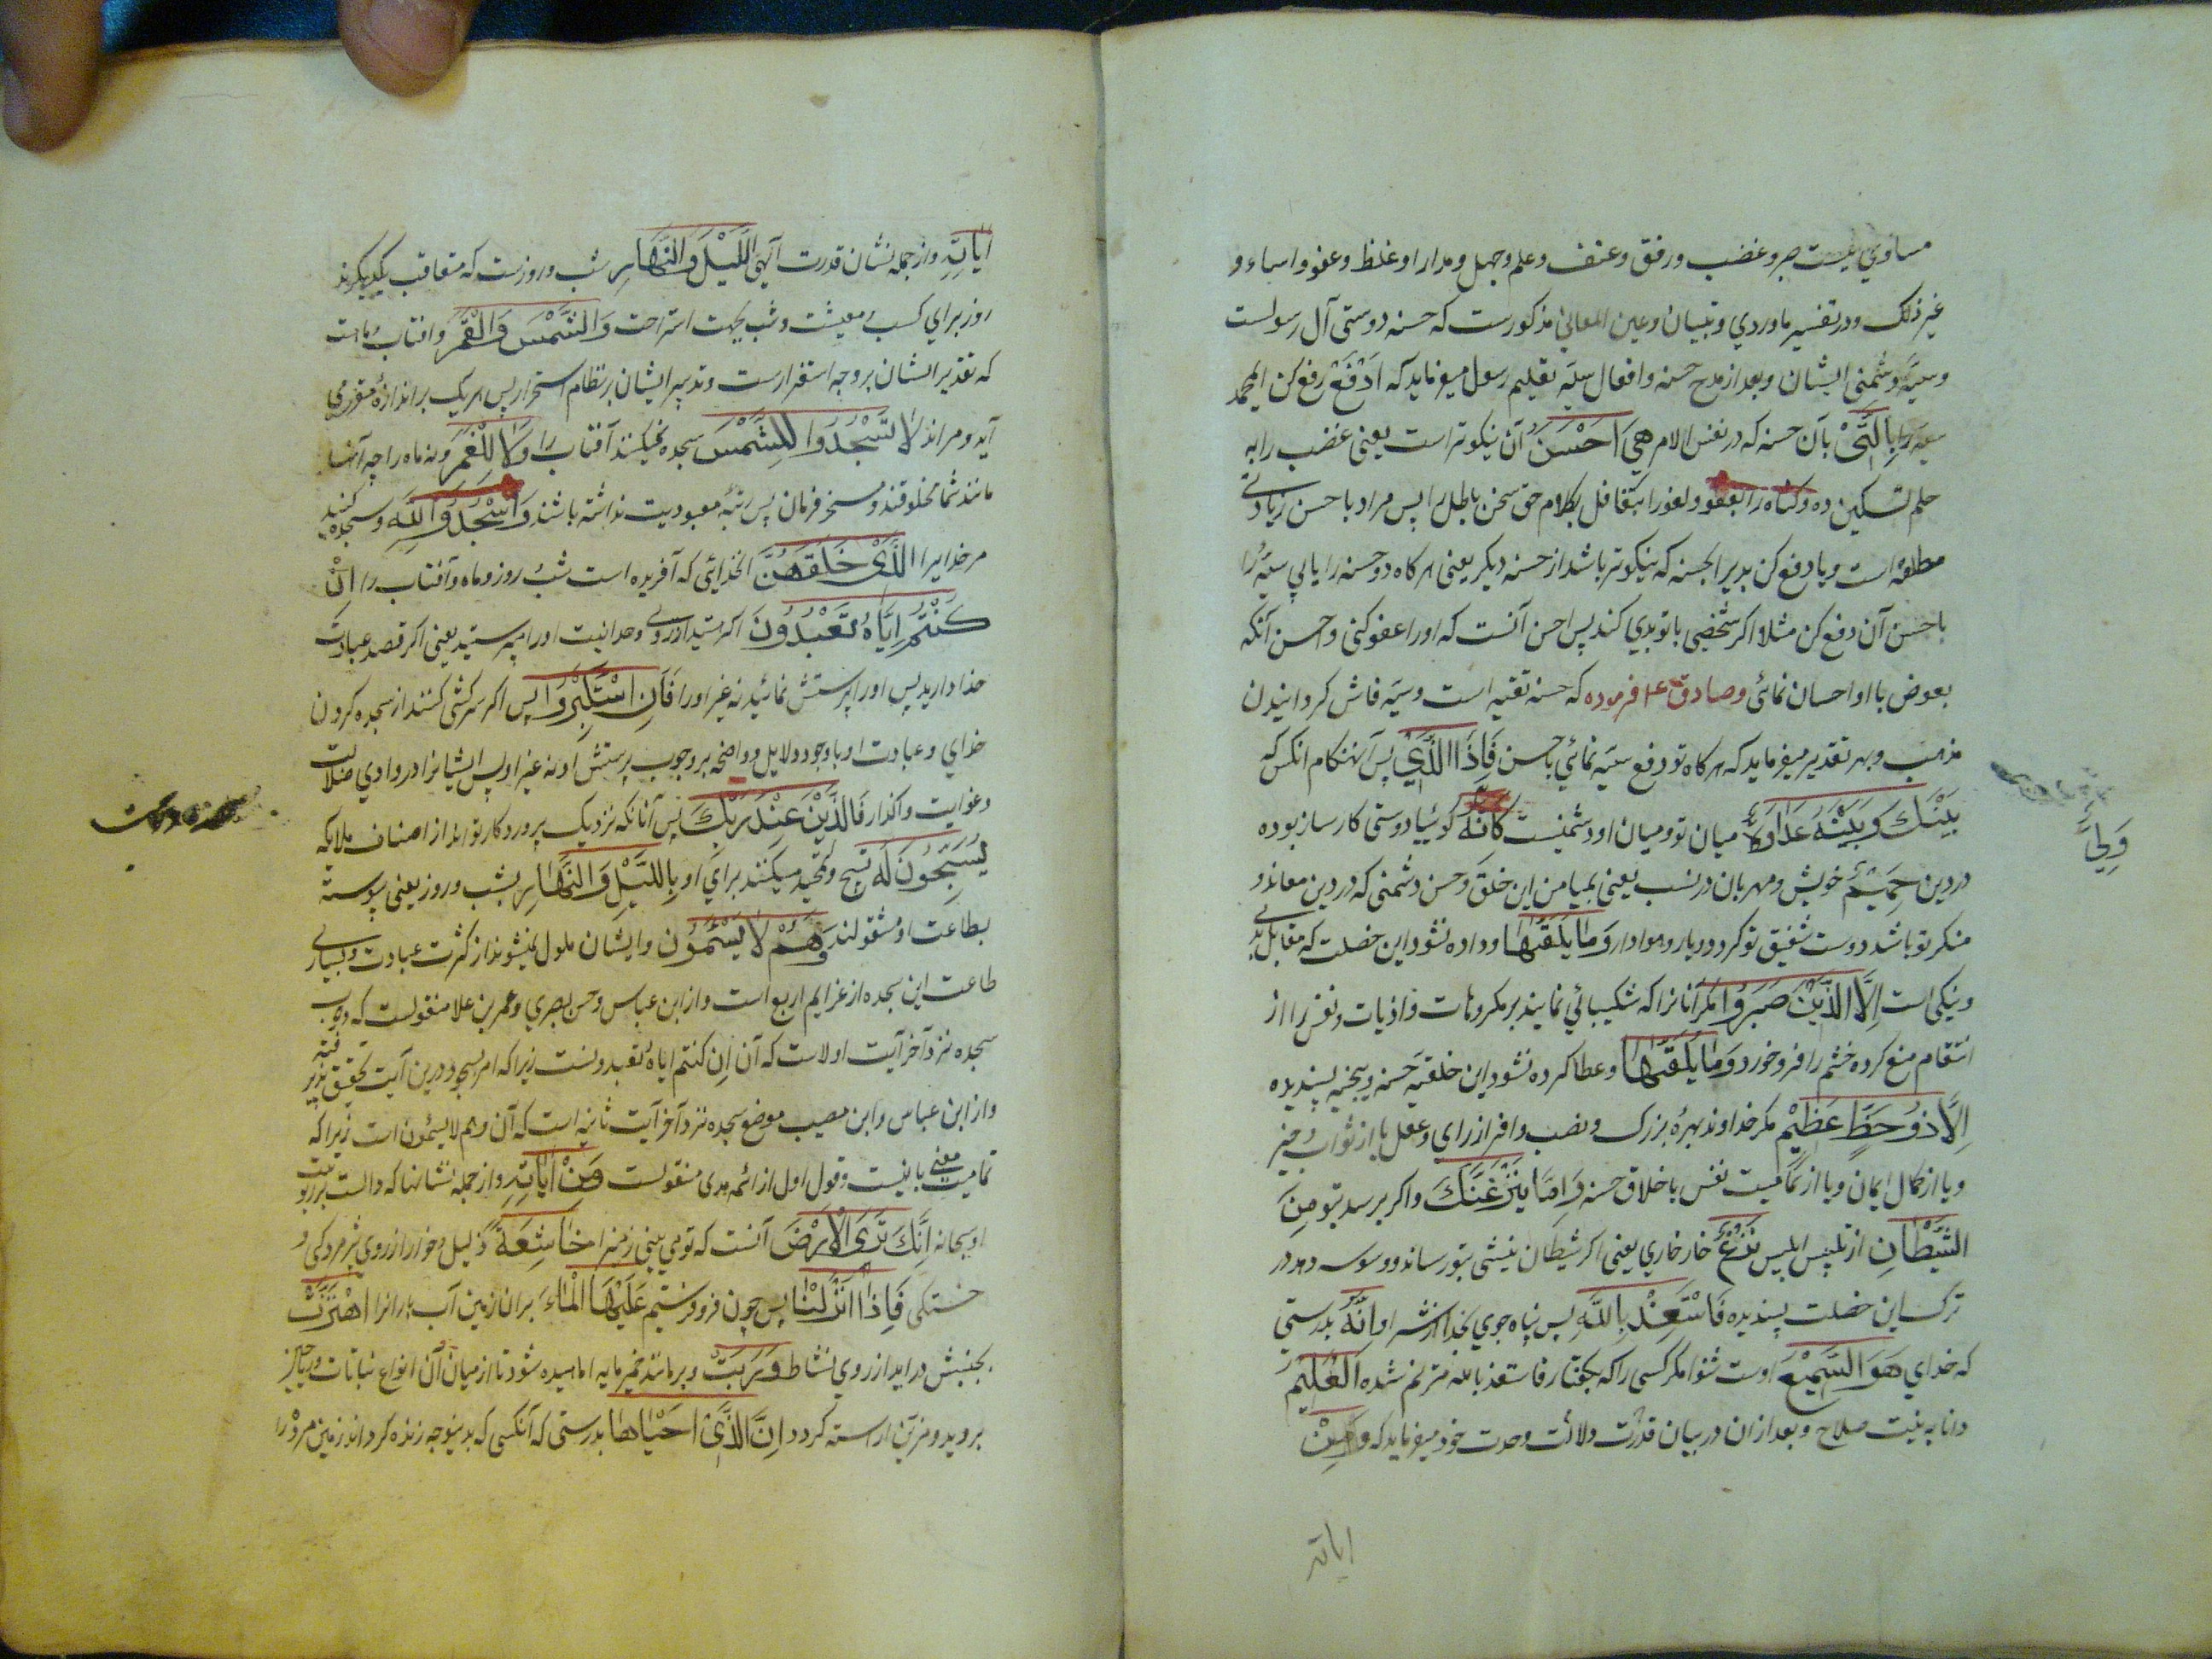 مساوي نیست صبر و غضب و رفق و عنف و علم و جهل و مدارا و غلظ و عفو و اساءه و
غیر ذلک و در تفسیر ماوردي و تبیان و عین المعاني مذکورست که حسنه دوستی آل رسولست
و سیّه دشمنی ایشان و بعد از مدح حسنه و افعال سیّه تعلیم رسول میفرماید که اِدْفَعْ رفع کن ای محمد
سیّه را بِالَّتِیْ بآن حسنه که در نفس الامر هِيَ اَحْسَنُ آن نیکوتر است یعنی غضب را به
حلم تسکین ده و گناه را بعفو و لغو را بتغافل بکلام حق سخن باطل را پس مراد با حسن زیادتی
مطلقه است و یا دفع کن بدیرا بحسنه که نیکوتر باشد از حسنه دیکر یعنی هر کاه دو حسنه را یابي سیّه را
با حسن آن دفع کن مثلا اکر شخصی با تو بدي کند پس احسن آنست که او را عفو کنی و احسن آنکه
بعوض با او احسان نمائی و صادق ع فرموده که حسنه تقیه است و سیّه فاش کردانیدن
مذهب و بهر تقدیر میفرماید که هر کاه تو دفع سیّه نمائي باحسن فَاِذَا الَّذِيْ پس آنهنکام انکس که
بَيْنَكَ وَبَيْنَهُ عَدَاوَةٌ میان تو و میان او دشمنیست كَاَنَّهُ کوئیا دوستی کارساز بوده
وَلِيٌّ
در دین حَمِيْمٌ خویش و مهربان در نسب یعنی بمیامن این خلق و حسن دشمنی که در دین معاند و
منکر تو باشد دوست شفیق تو کردد و یار و هوادار وَمَا يُلَقّٰيهَا و داده نشود این خصلت که مقابل بدی
و نیکی است اِلَّا الَّذِيْنَ صَبَرُوْا مکر آنانرا که شکیبائي نمایند بر مکروهات و اذیات و نفس را از
انتقام منع کرده خشم را فرو خورد وَمَا يُلَقّٰيهَا و عطا کرده نشود این خلقیّه حسنه و سجیه پسندیده
اِلَّا ذُوْ حَظٍّ عَظِيْمٍ مکر خداوند بهرهٔ بزرک و نصیب وافر از راي و عقل یا از ثواب و خیر
و یا از کمال ایمان و یا از تمامیت نفس باخلاق حسنه وَاِمَّا يَنْزَغَنَّكَ و اکر برسد بتو مِنَ
الشَّيْطَانِ از تلبیس ابلیس نَزْغٌ خار خاري یعنی اکر شیطان نیشی بتو رساند و وسوسه دهد در
ترک این خصلت پسندیده فَاسْتَعِذْ بِاللّٰهِ پس پناه جوي بخدا از شر او اِنَّهُ بدرستي
که خداي هُوَ السَّمِيْعُ اوست شنوا مکر کسی را که بکفتار فاستعذ بالله مترنم شده الْعَلِيْمُ
دانا به نیت صلاح و بعد از ان در بیان قدرت و دلالت وحدت خود میفرماید که وَمِنْ
ایاته
اٰيَاتِهِ و از جمله نشان قدرت آلهی اللَّيْلُ وَالنَّهَارُ شب و روزست که متعاقب یکدیکرند
روز براي کسب معیشت و شب بجهت استراحت وَالشَّمْسُ وَالْقَمَرُ و افتاب و ماهست
که تقدیر ایشان بر وجه استقرارست و تدبیر ایشان بر نظام استمرار پس هر یک بر اندازهٔ مقرر می
آید و مراند لَا تَسْجُدُوْا لِلشَّمْسِ سجده نمیکنند آفتاب را وَلَا لِلْقَمَرِ و نه ماه را چه آنها
مانند شما مخلوقند و مسخر فرمان پس رتبهٔ معبودیت نداشته باشند وَاسْجُدُوْا لِلّٰهِ و سجده کنید
مر خدایرا الَّذِيْ خَلَقَهُنَّ انخدائی که آفریده است شب و روز و ماه و آفتاب را اِنْ
كُنْتُمْ اِيَّاهُ تَعْبُدُوْنَ اکر هستید از روی وحدانیت او را میپرستید یعنی اکر قصد عبادت
خدا دارید پس او را پرستش نمائید نه غیر او را فَاِنِ اسْتَكْبَرُوْا پس اکر سرکشی کنند از سجده کردن
خداي و عبادت او با وجود دلایل واضحه بر وجوب پرستش او نه غیر او پس ایشانرا در وادي ضلالت
و غوایت واکذار فَالَّذِيْنَ عِنْدَ رَبِّكَ پس آنانکه نزدیک پروردکار تواند از اصناف ملایکه
يُسَبِّحُوْنَ لَهُ تسبیح و تمجید میکنند براي او بِاللَّيْلِ وَالنَّهَارِ بشب و روز یعنی پیوسته
بطاعت او مشغولند وَهُمْ لَا يَسْئَمُوْنَ و ایشان ملول نمیشوند از کثرت عبادت و بسیاری
طاعت این سجده از عزایم اربع است و از ابن عباس و حسن بصري و عمر بن علا منقولست که
سجده نزد آخر آیت اولاست که آن اِن کنتم ایاه تعبدونست زیرا که امر بسجود درین آیت تحقیق پذیر فته
و از ابن عباس و ابن مصیب موضع سجده نزد آخر آیت ثانیه است که آن و هم لا یسئمون است زیرا که
تمامیت معنی باینست و قول اول از ائمه هدی منقولست وَمِنْ اٰيَاتِهِ و از جمله نشانها که دالست بر ربوبیت
او سبحانه اَنَّكَ تَرَى الْاَرْضَ آنست که تو می بینی زمینرا خَاشِعَةً ذلیل و خوار از روی پژمردکی و
خستکی فَاِذَا اَنْزَلْنَا پس چون فرو فرستیم عَلَيْهَا الْمَاءَ بران زمین آب بارانرا اهْتَزَّتْ
بجنبش در اید از روي نشاط وَرَبَتْ و بر مانند خمیر مایه اماسیده شود تا از میان آن انواع نباتات و ریاحین
بروید و مزین اراسته کردد اِنَّ الَّذِيْ اَحْيَاهَا بدرستی که آنکسی که بدینوجه زنده کرداند زمین مرده را